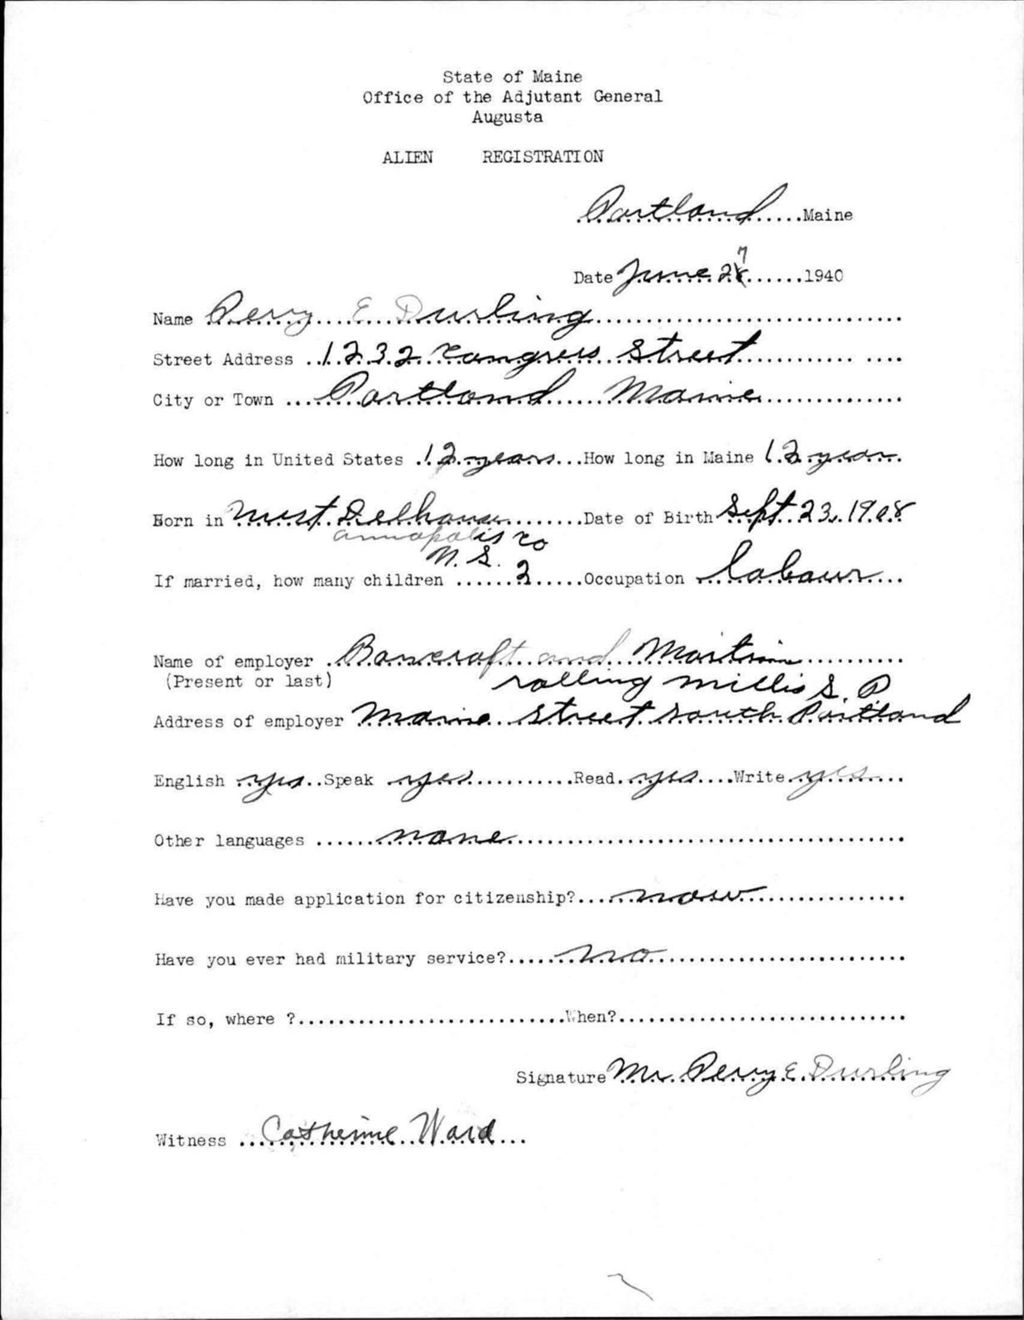 State of Maine
Office of the Adjutant General
Augusta
ALIEN REGISTRATION
Portland......Maine
Date June 27......1940
Name Perry E Durling
Street Address 1232 Congress Street
City or Town Portland Maine
How long in United States 12 years...How long in Maine 12 year
Born in West Delhousie........Date of Birth Sept. 23, 1908
annapolis co
N.S.
If married, how many children ......2.....Occupation labour
Name of employer Bancroft and Martin
(Present or last) rolling millis S. P
Address of employer Maine Street South Portland
English yes..Speak yes..........Read yes....Write yes
Other languages ......none
Have you made application for citizenship?...now
Have you ever had military service?......no
If so, where ?..........................When?.............................
Signature Mr. Perry E. Durling
Witness ...Catherine Ward...